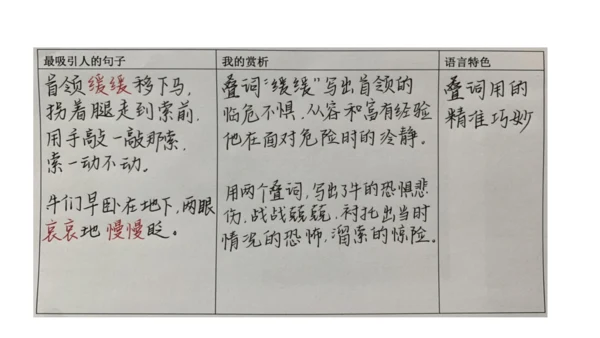 最吸引人的句子
我的赏析
语言特色
首领缓缓移下马,
拐着腿走到索前,
用手敲一敲那索,
索一动不动。
牛们早卧在地下,两眼
哀哀地慢慢眨。
叠词“缓缓”写出首领的
临危不惧,从容和富有经验
他在面对危险时的冷静。
用两个叠词,写出了牛的恐惧悲
伤,战战兢兢,衬托出当时
情况的恐怖,溜索的惊险。
叠词用的
精准巧妙